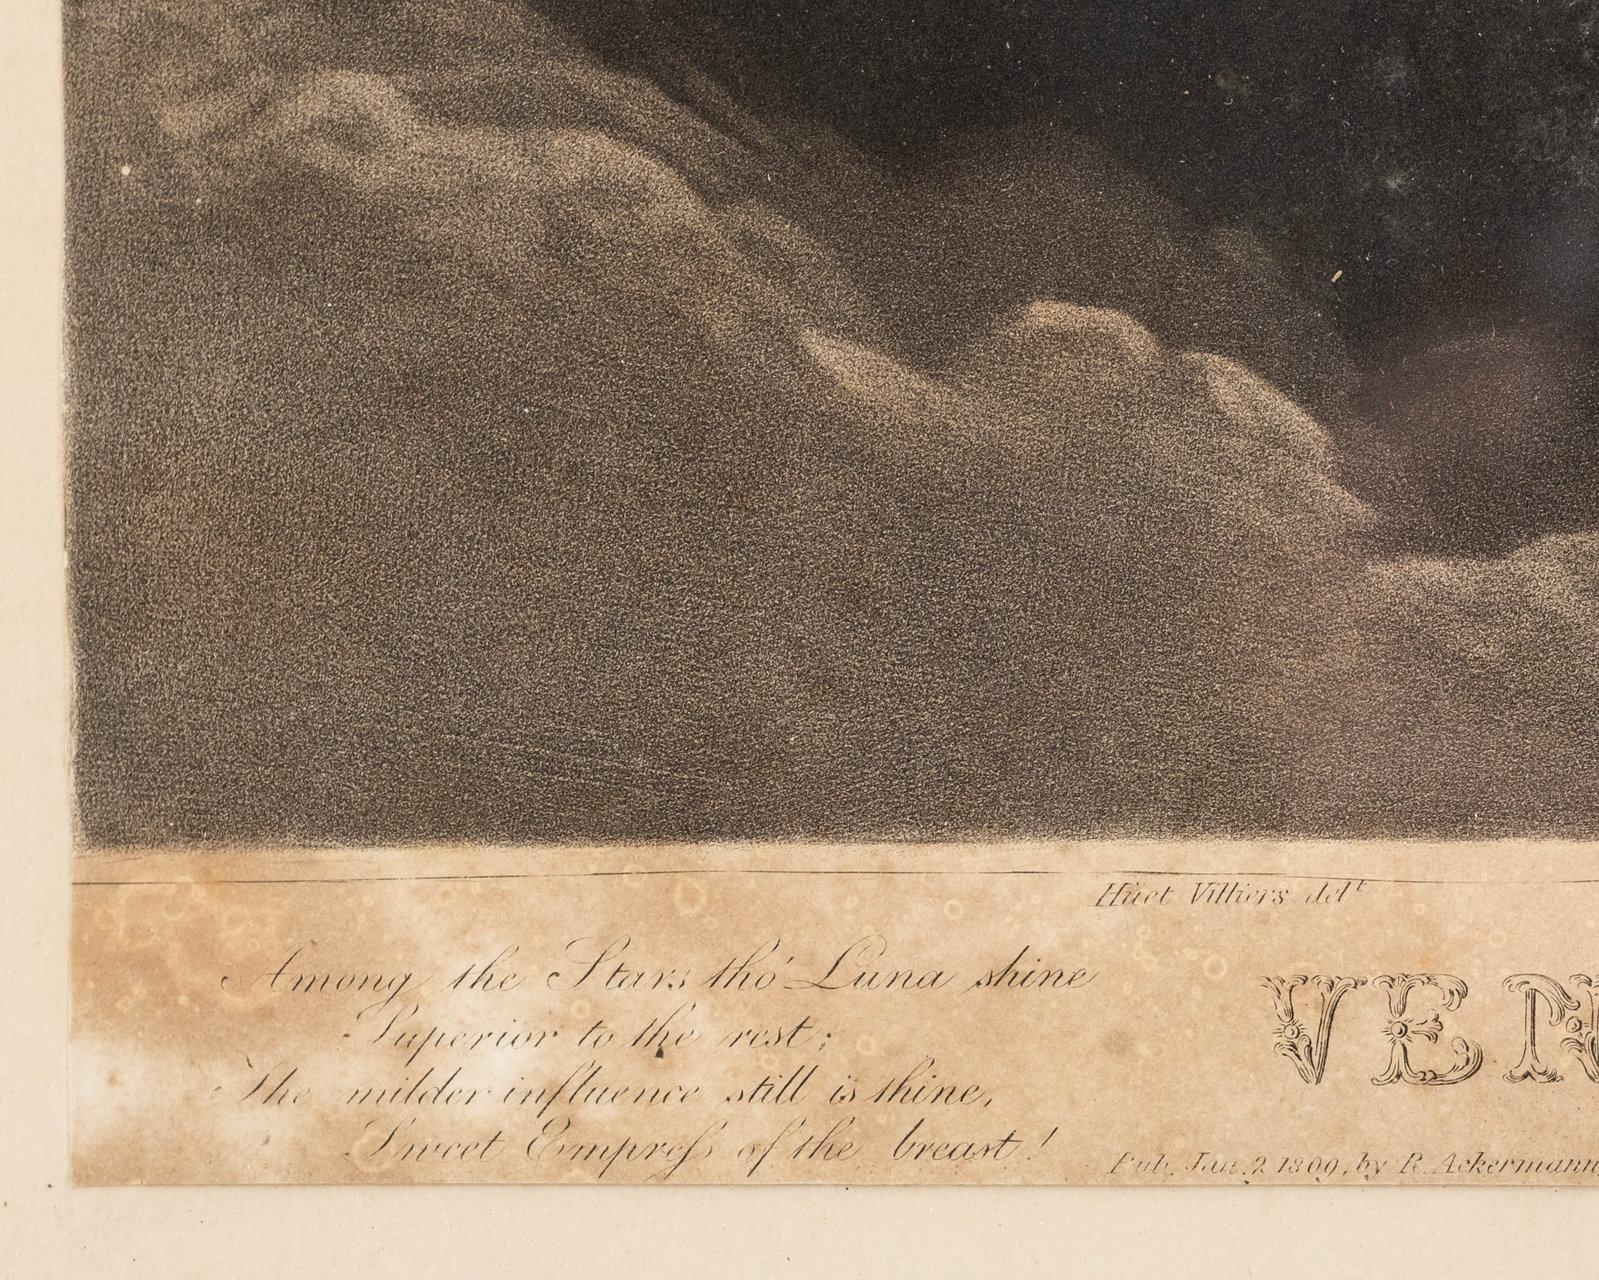 Hüet Villiers delt
Among the Stars tho' Luna shine
Superior to the rest;
The milder influence still is thine,
Sweet Empreſs of the breast!
VEN
Pub. Jan. 2 1809, by R. Ackermann,